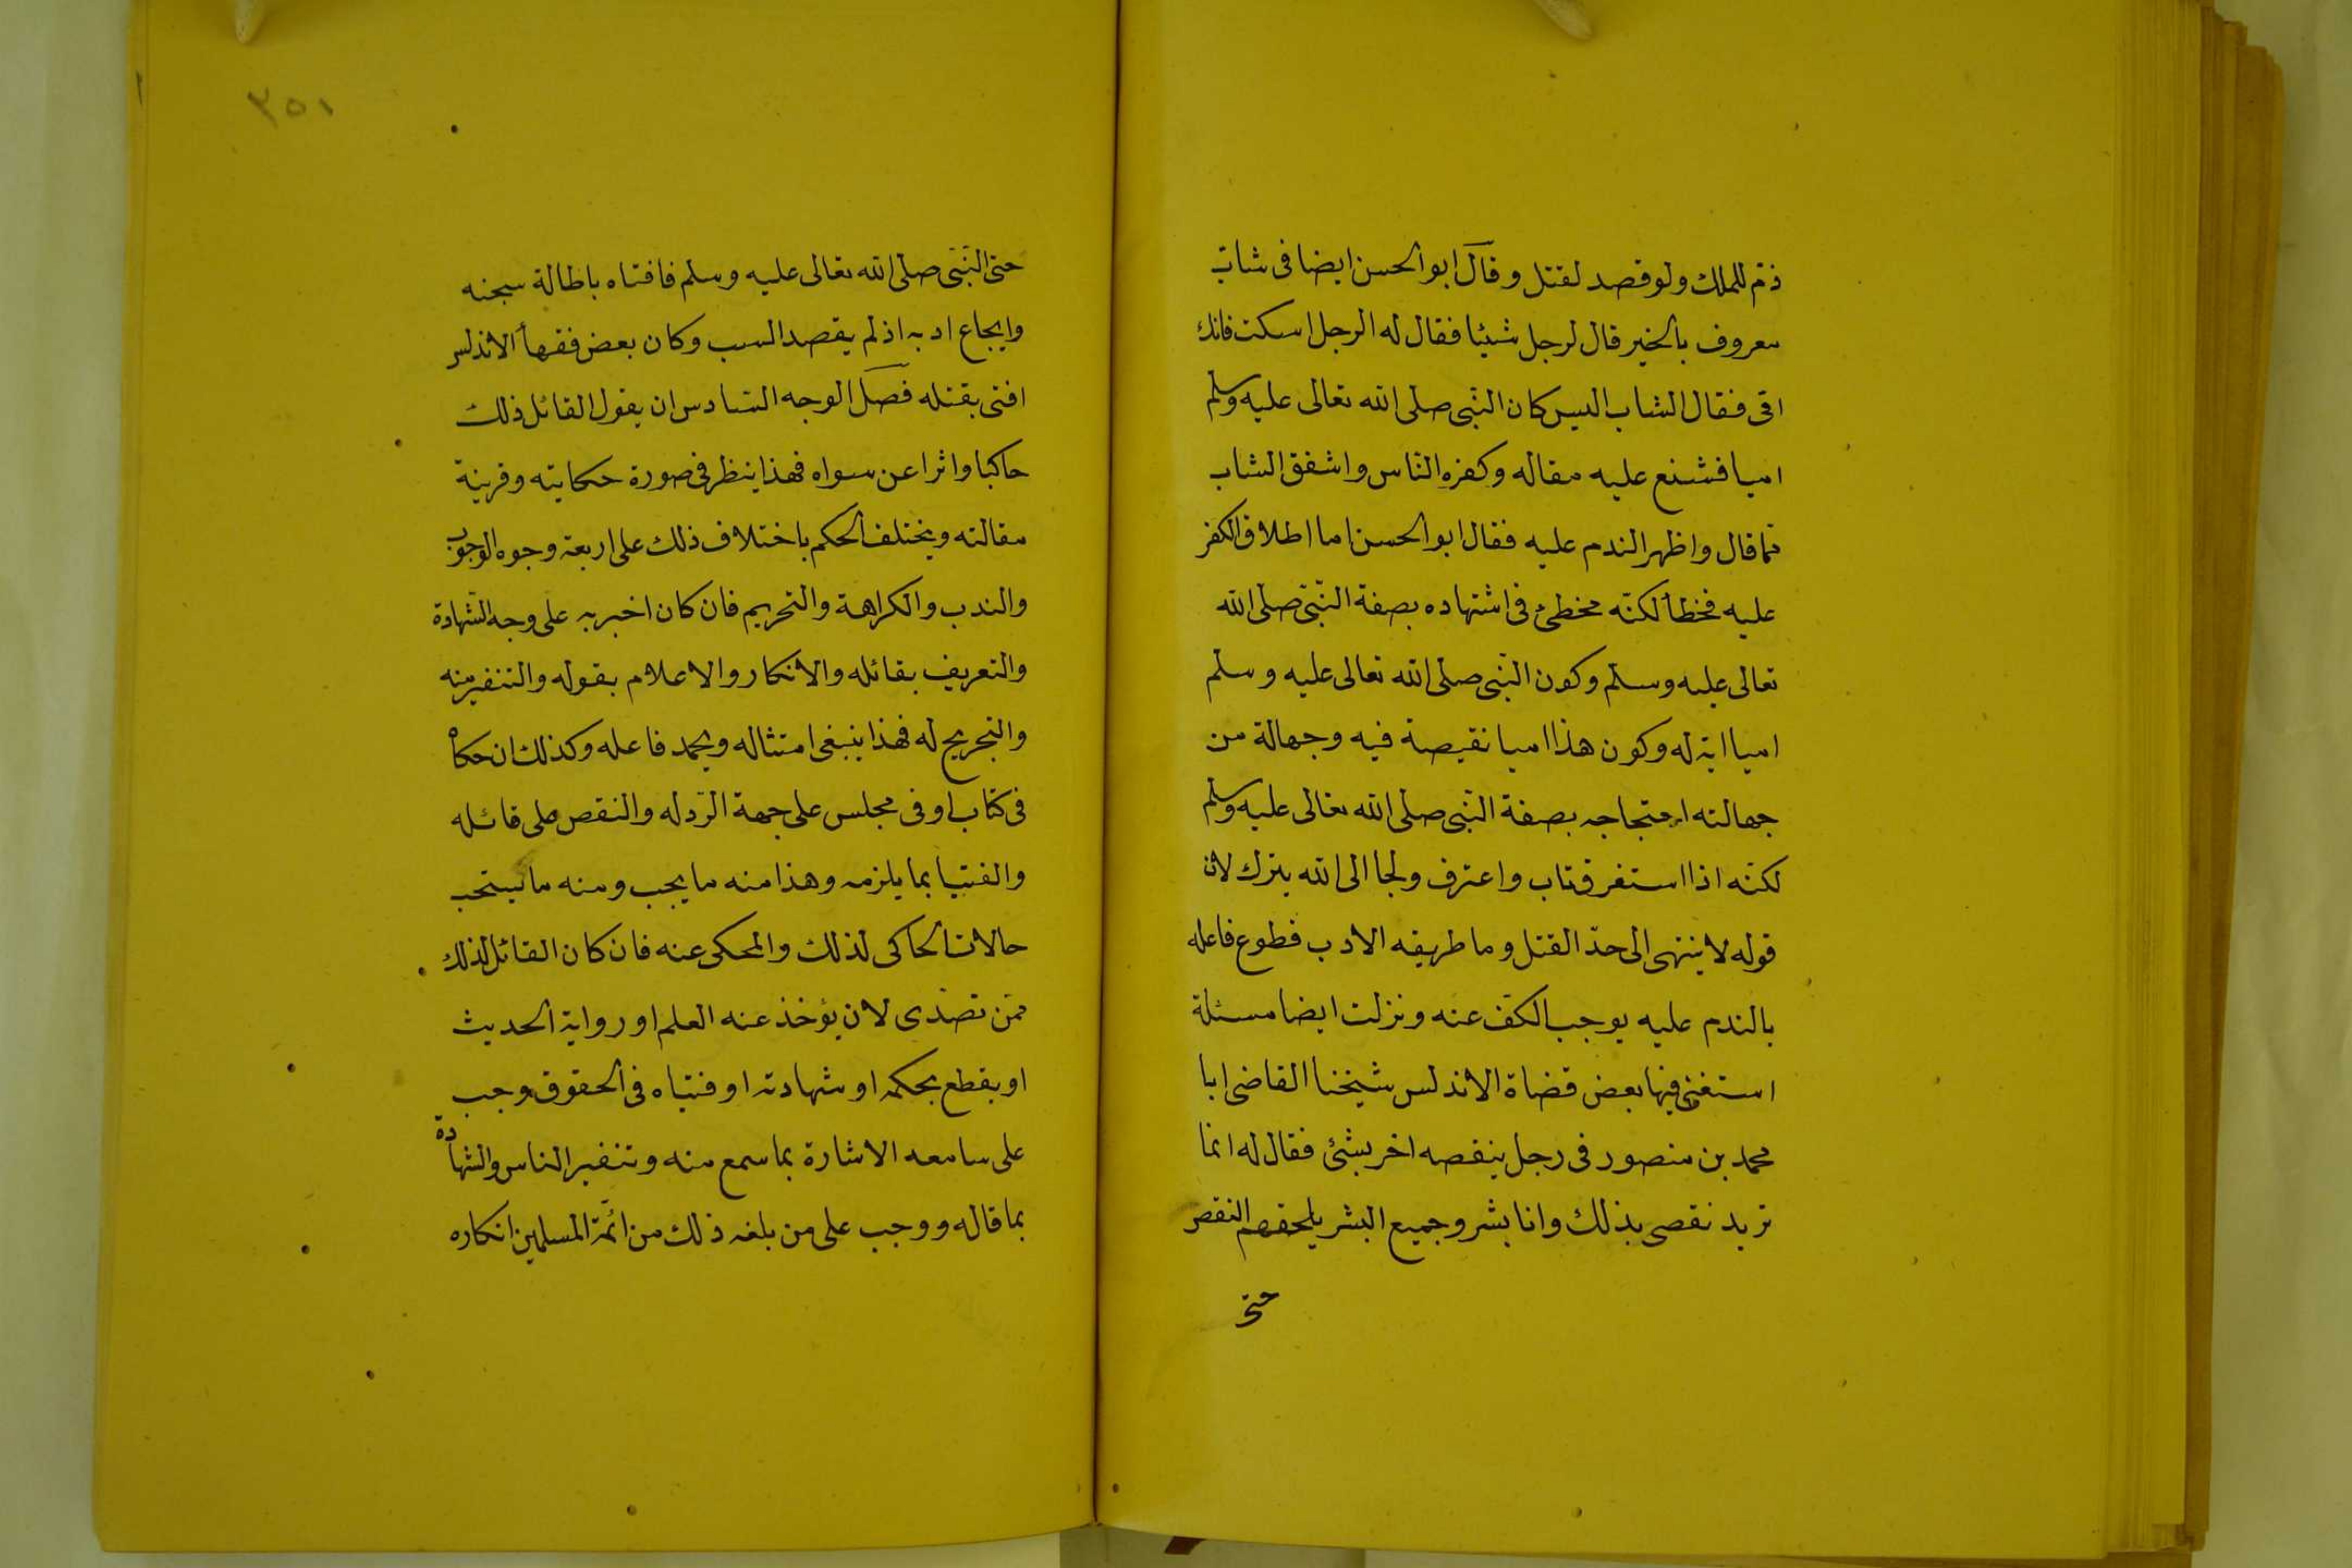 ذم للملك ولو قصد لقتل وقال ابو الحسن ايضا فى شاب
معروف بالخير قال لرجل شيئا فقال له الرجل اسكت فانك
امى فقال الشاب اليس كان النبى صلى الله تعالى عليه وسلم
اميا فشنع عليه مقاله وكفره الناس واشفق الشاب
مما قال واظهر الندم عليه فقال ابو الحسن اما اطلاق الكفر
عليه فخطأ لكنه مخطئ فى اشتهاده بصفة النبى صلى الله
تعالى عليه وسلم وكون النبى صلى الله تعالى عليه وسلم
اميا اية له وكون هذا اميا نقيصة فيه وجهالة من
جهالته احتجاجه بصفة النبى صلى الله تعالى عليه وسلم
لكنه اذا استغفر وتاب واعترف ولجا الى الله يترك لان
قوله لا ينتهى الى حد القتل وما طريقه الادب فطوع فاعله
بالندم عليه يوجب الكف عنه ونزلت ايضا مسئلة
استفتى فيها بعض قضاة الاندلس شيخنا القاضى ابا
محمد بن منصور فى رجل ينقصه اخر بشئ فقال له انما
تريد نقصى بذلك وانا بشر وجميع البشر يلحقهم النقص
حتى
٣٥١
حتى النبى صلى الله تعالى عليه وسلم فافتاه باطالة سجنه
وايجاع ادبه اذ لم يقصد السب وكان بعض فقهأ الاندلس
افتى بقتله فصل الوجه السادس ان يقول القائل ذلك
حاكيا واثرا عن سواه فهذا ينظر فى صورة حكايته وقرينة
مقالته ويختلف الحكم باختلاف ذلك على اربعة وجوه الوجوب
والندب والكراهة والتحريم فان كان اخبر به على وجه الشهادة
والتعريف بقائله والانكار والاعلام بقوله والتنفير منه
والتجريح له فهذا ينبغى امتثاله ويحمد فاعله وكذلك ان حكاه
فى كتاب او فى مجلس على جهة الرد له والنقص على قائله
والفتيا بما يلزمه وهذا منه ما يجب ومنه ما يستحب
حالات الحاكى لذلك والمحكى عنه فان كان القائل لذلك
ممن تصدى لان يؤخذ عنه العلم او رواية الحديث
او يقطع بحكمه او شهادته او فتياه فى الحقوق وجب
على سامعه الاشارة بما سمع منه وتنفير الناس والشهادة
بما قاله ووجب على من بلغه ذلك من ائمة المسلمين انكاره